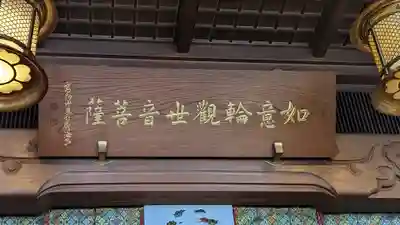 如意輪觀世音菩薩